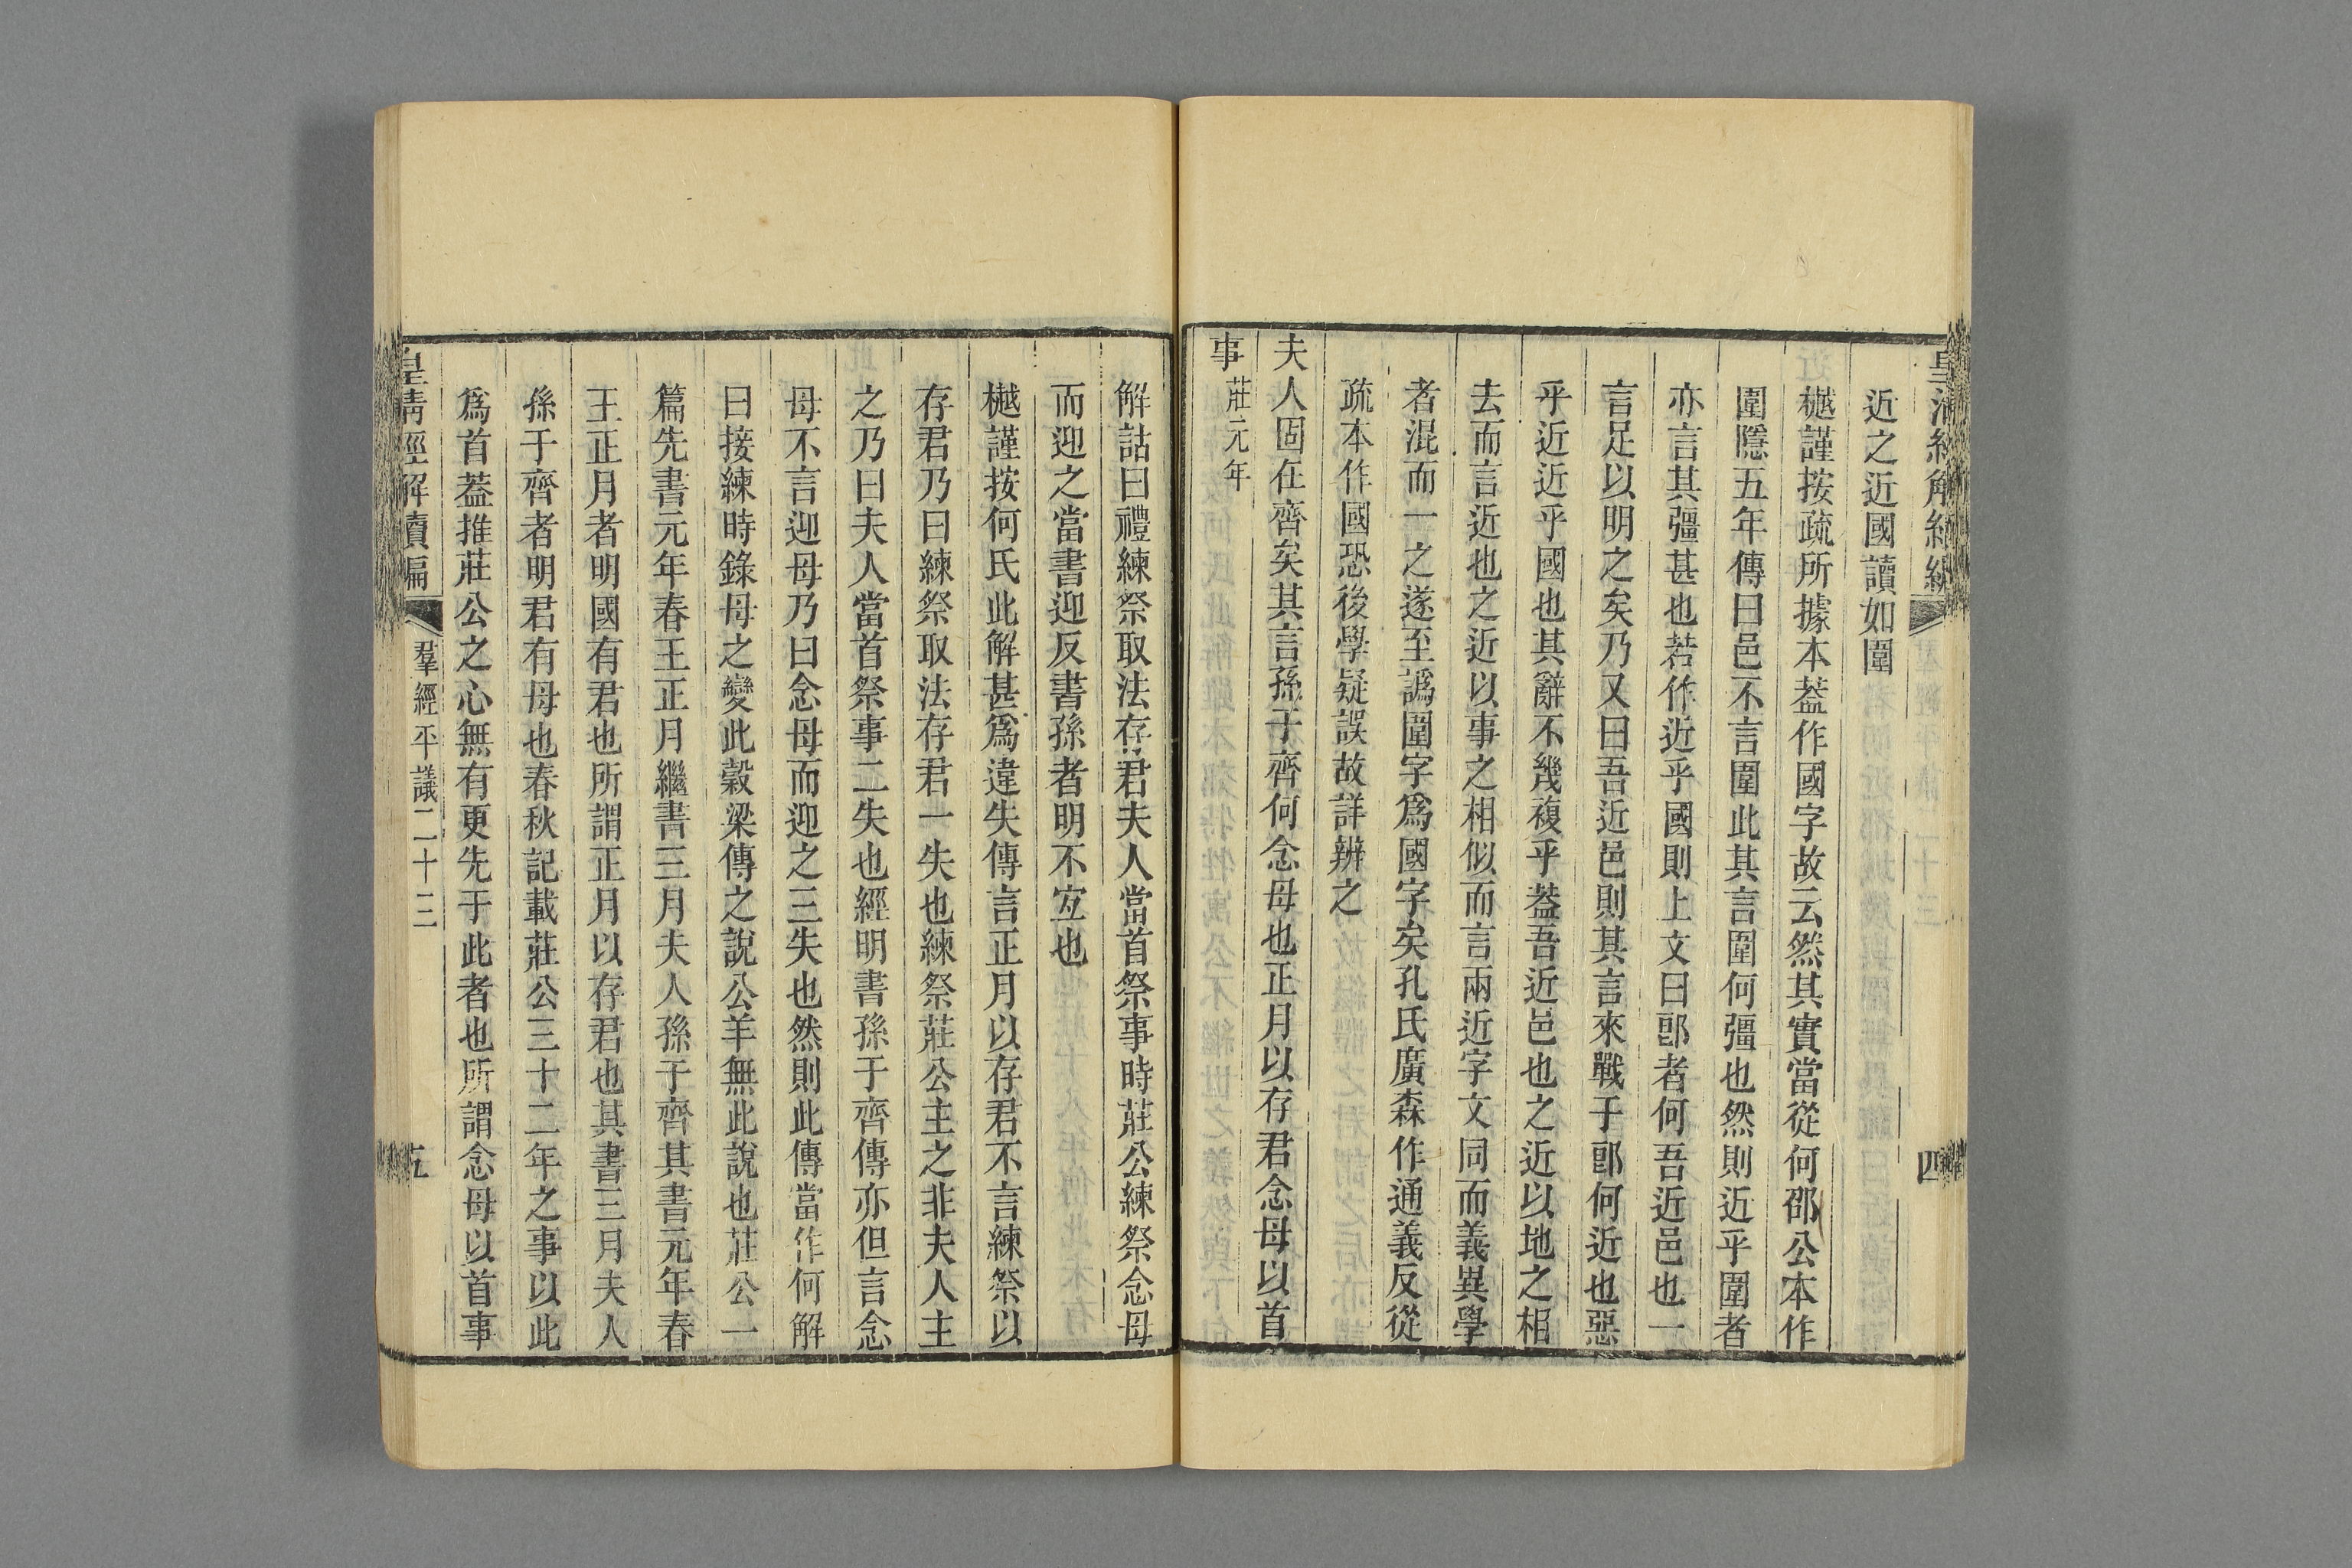 近之近國讀如圍
樾謹按疏所據本葢作國字故云然其實當從何邵公本作
圍隱五年傳曰邑不言圍此其言圍何彊也然則近乎圍者
亦言其彊甚也若作近乎國則上文曰郎者何吾近邑也一
言足以明之矣乃又曰吾近邑則其言來戰于郎何近也惡
乎近近乎國也其辭不幾複乎葢吾近邑也之近以地之相
去而言近也之近以事之相似而言兩近字文同而義異學
者混而一之遂至譌圍字爲國字矣孔氏廣森作通義反從
疏本作國恐後學疑誤故詳辨之
夫人固在齊矣其言孫于齊何念母也正月以存君念母以首
事莊元年
解詁曰禮練祭取法存君夫人當首祭事時莊公練祭念母
而迎之當書迎反書孫者明不宐也
樾謹按何氏此解甚爲違失傳言正月以存君不言練祭以
存君乃曰練祭取法存君一失也練祭莊公主之非夫人主
之乃曰夫人當首祭事二失也經明書孫于齊傳亦但言念
母不言迎母乃曰念母而迎之三失也然則此傳當作何解
曰接練時錄母之變此穀梁傳之說公羊無此說也莊公一
篇先書元年春王正月繼書三月夫人孫于齊其書元年春
王正月者明國有君也所謂正月以存君也其書三月夫人
孫于齊者明君有母也春秋記載莊公三十二年之事以此
爲首葢推莊公之心無有更先于此者也所謂念母以首事
皇清經解續編 羣經平議二十三 五